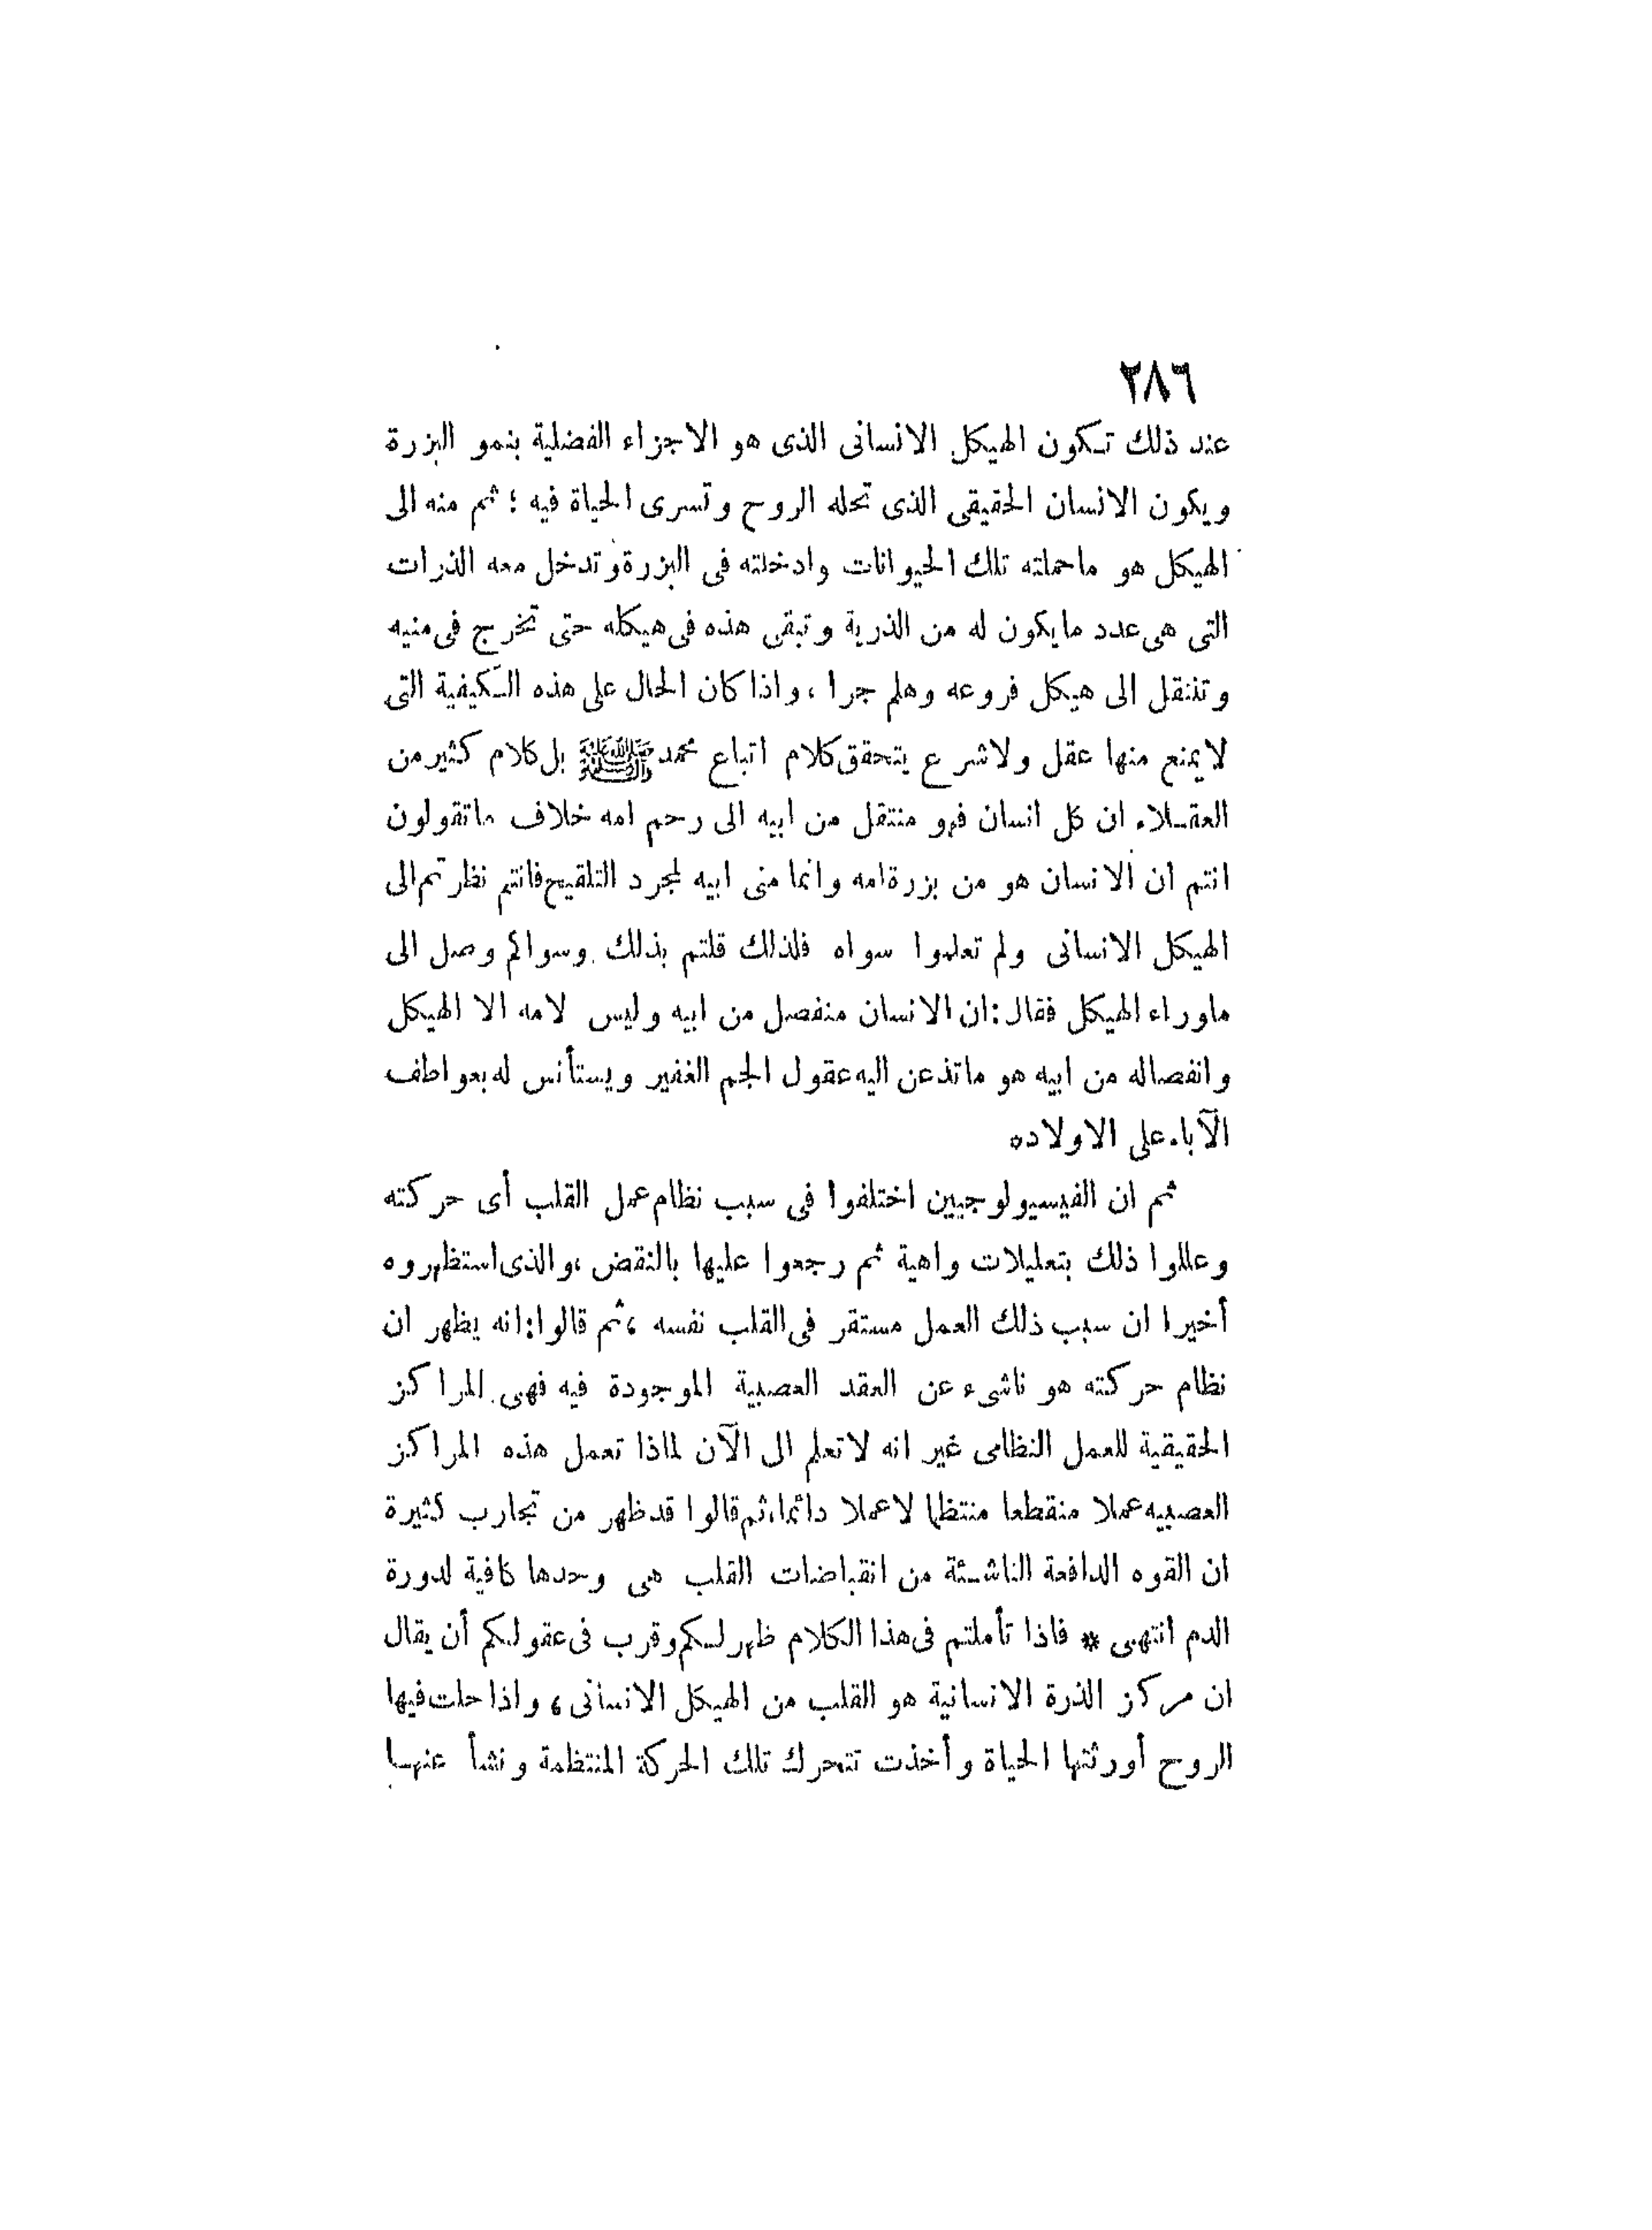 ٢٨٦
عند ذلك تكون الهيكل الانسانى الذى هو الاجزاء الفضلية بنمو البزرة
ويكون الانسان الحقيقى الذى تحله الروح وتسرى الحياة فيه ؛ ثم منه الى
الهيكل هو ماحملته تلك الحيوانات وادخلته فى البزرة وتدخل معه الذرات
التى هى عدد مايكون له من الذرية وتبقى هذه فى هيكله حتى تخرج فى منيه
وتنتقل الى هيكل فروعه وهلم جرا ، واذا كان الحال على هذه الكيفية التى
لايمنع منها عقل ولاشرع يتحقق كلام اتباع محمد ﷺ بل كلام كثير من
العقلاء ان كل انسان فهو منتقل من ابيه الى رحم امه خلاف ماتقولون
انتم ان الانسان هو من بزرة امه وانما منى ابيه لمجرد التلقيح فانتم نظرتم الى
الهيكل الانسانى ولم تعلموا سواه فلذلك قلتم بذلك وسواكم وصل الى
ماوراء الهيكل فقال : ان الانسان منفصل من ابيه وليس لامه الا الهيكل
وانفصاله من ابيه هو ماتذعن اليه عقول الجم الغفير ويستأنس له بعواطف
الآباء على الاولاده
ثم ان الفيسيولوجيين اختلفوا فى سبب نظام عمل القلب أى حركته
وعللوا ذلك بتعليلات واهية ثم رجعوا عليها بالنقض ، والذى استظهروه
أخيرا ان سبب ذلك العمل مستقر فى القلب نفسه ، ثم قالوا : انه يظهر ان
نظام حركته هو ناشىء عن العقد العصبية الموجودة فيه فهى المراكز
الحقيقية للعمل النظامى غير انه لاتعلم الى الآن لماذا تعمل هذه المراكز
العصبيه عملا منقطعا منتظما لاعملا دائما ، ثم قالوا قد ظهر من تجارب كثيرة
ان القوه الدافعة الناشئة من انقباضات القلب هى وحدها كافية لدورة
الدم انتهى * فاذا تأملتم فى هذا الكلام ظهر لكم وقرب فى عقولكم أن يقال
ان مركز الذرة الانسانية هو القلب من الهيكل الانسانى ، واذا حلت فيها
الروح أورثتها الحياة وأخذت تتحرك تلك الحركة المنتظمة ونشأ عنها